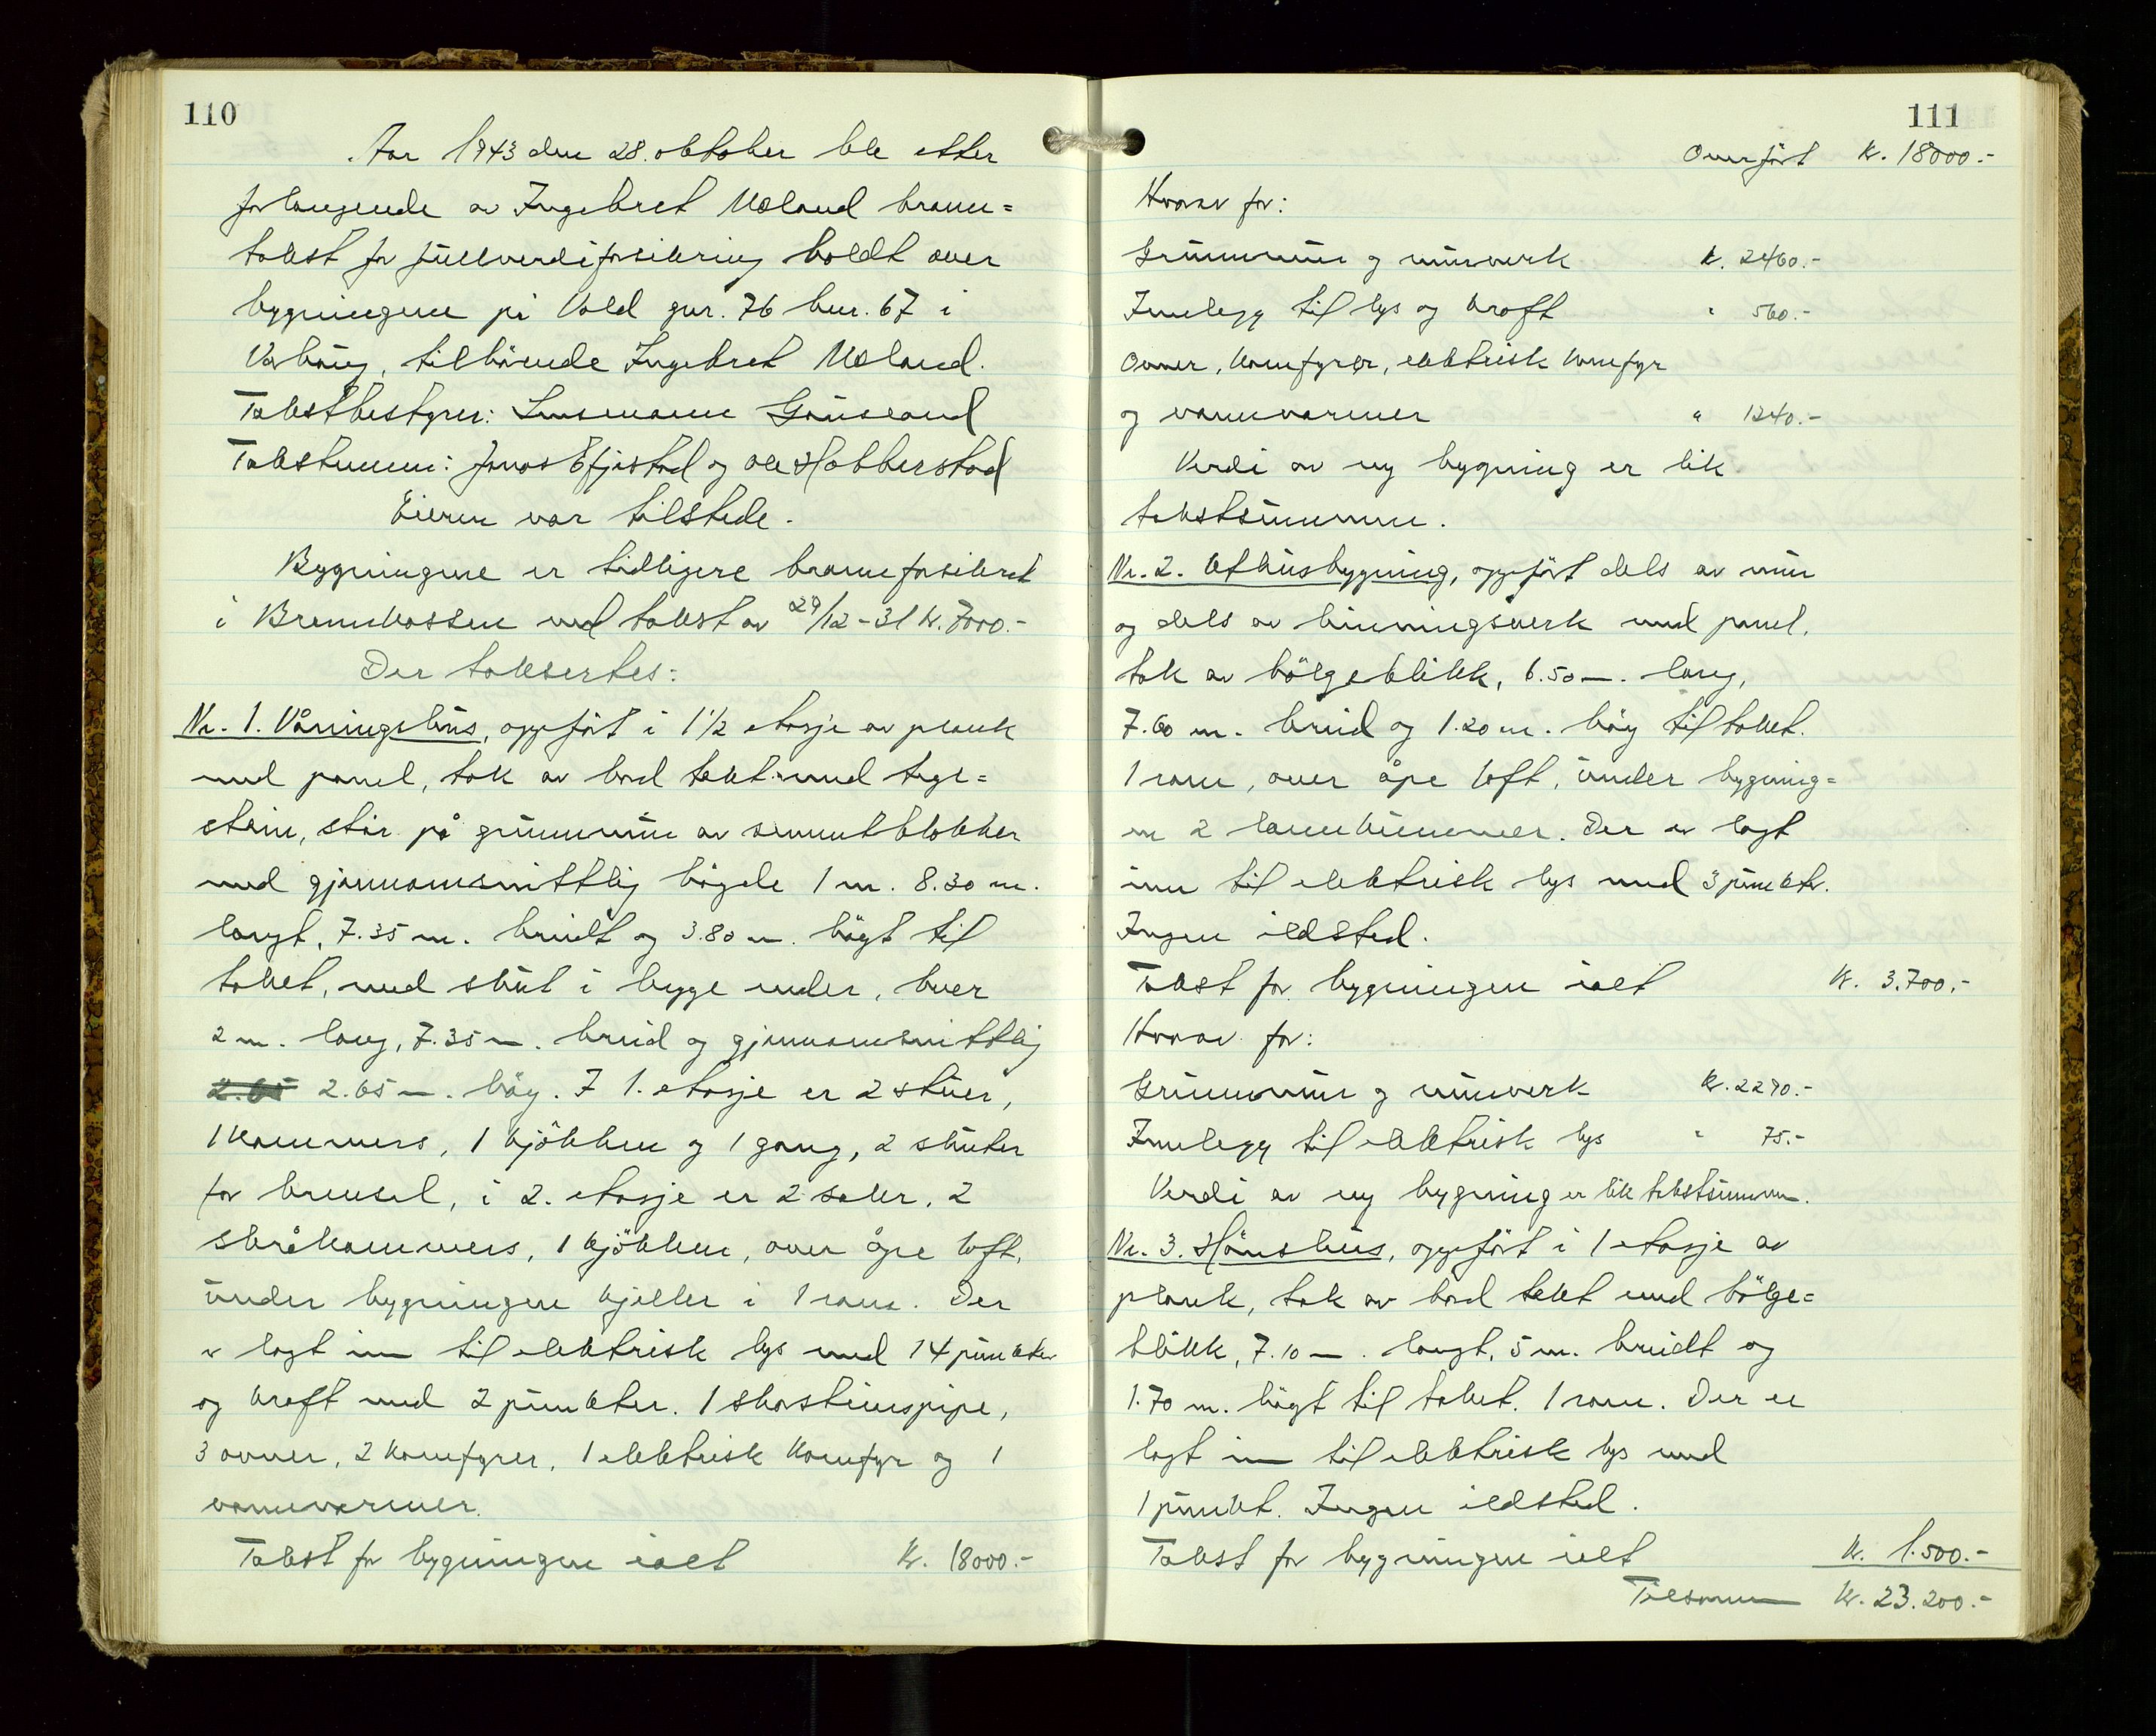 110
Aar 1943 den 28. oktober ble etter
forlangende av Ingebret Undheim brann=
takst for fullverdiforsikring holdt over
bygningene på Vold gnr. 76 bnr. 67 i
Varhaug, tilhörende Ingebret
Takstbestyrer: Lensmann Gausland
Takstmenn: Jonas Efjestad og Ole Hobberstad
Eieren var tilstede.
Bygningene er tidligere brannforsikret
i Brannkassen ved takst av 29/12-31 kr. 7000.-
Der takseres:
Nr. 1. Våningshus, oppfört i 1 1/2 etasje av plank
med panel, tak av bord tekt med tegl=
stein, står på grunnmur av sementblokker
med gjennomsnittlig högde 1 m. 8.30 m.
langt, 7.35 m. breidt og 3.80 m. högt til
taket, med skut i begge ender, hver
2 m. lang, 7.35 m. breid og gjennomsnittlig
2.65 2.65 m. hög. I 1. etasje er 2 stuer,
1 kammers, 1 kjökken og 1 gang, 2 skuter
for brensel, i 2. etasje er 2 saler, 2
skråkammers, 1 kjökken, over åpe loft,
under bygningen kjeller i 1 rom. Der
er lagt inn til elektrisk lys med 14 punkter
og kraft med 2 punkter. 1 skorsteinspipe,
3 ovner, 2 komfyrer, 1 elektrisk komfyr og 1
vannvarmer.
Takst for bygningen ialt kr. 18000.-
111
Overfört kr. 18000.-
Hvorav for:
Grunnmur og murverk kr. 2460.-
Innlegg til lys og kraft " 560.-
Ovner, komfyrer, elektrisk komfyr
og vannvarmer " 1240.-
Verdi av ny bygning er lik
takstsummen.
Nr. 2. Uthusbygning, oppfört dels av mur
og dels av binningsverk med panel,
tak av bölgeblikk, 6.50 m. lang,
7.60 m. breid og 1.20 m. hög til taket.
1 rom, over åpe loft, under bygning=
en 2 landkummer. Der er lagt
inn til elektrisk lys med 3 punkter.
Ingen ildsted.
Takst for bygningen ialt kr. 3.700.-
Hvorav for:
Grunnmur og murverk kr. 2290.-
Innlegg til elektrisk lys " 75.-
Verdi av ny bygning er lik takstsummen.
Nr. 3. Hönsehus, oppfört i 1 etasje av
plank, tak av bord tekt med bölge=
blikk, 7.10 m. langt, 5 m. breidt og
1.70 m. högt til taket. 1 rom. Der er
lagt inn til elektrisk lys med
1 punkt. Ingen ildsted.
Takst for bygningen ialt kr. 1.500.-
Tilsammen kr. 23.200.-